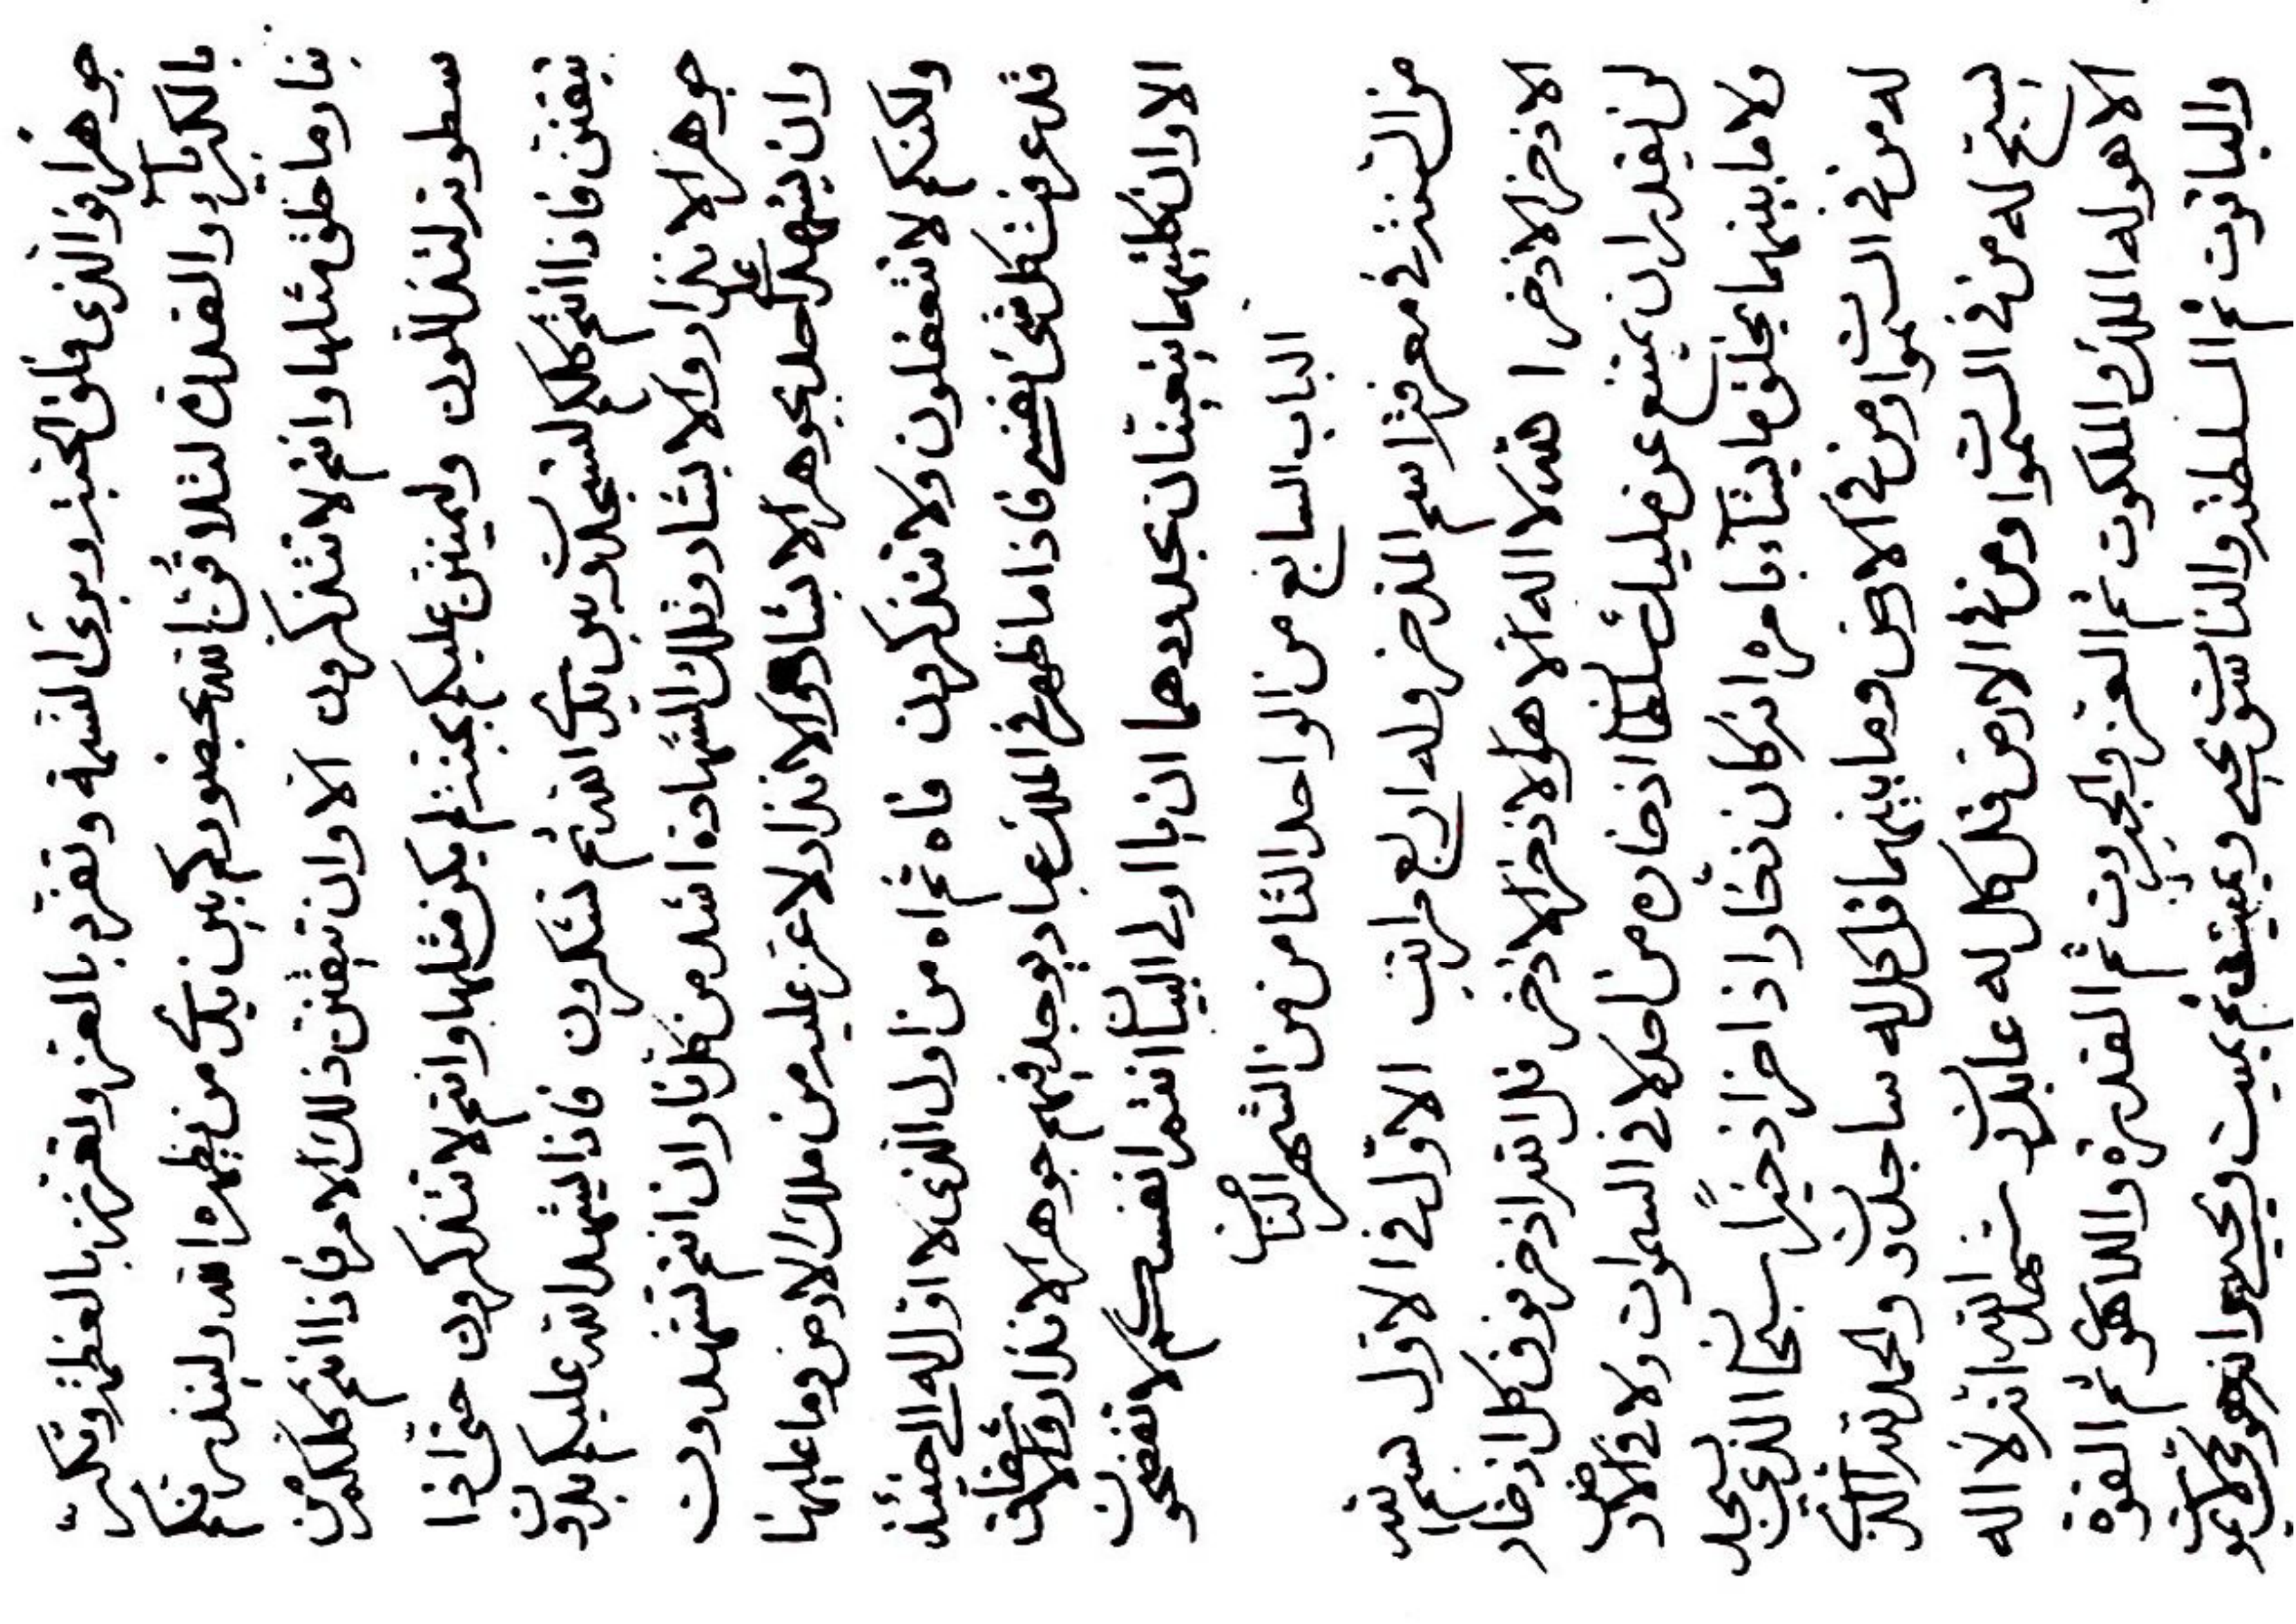 جوهرا فو الذى فلق الحبة وبرئ النسمة وتفرد بالعز وتعزز بالعظمة وتكبر
بالكبرياء والقدرة لتلاقن الله بحضوركم بين يدى من يظهره الله ولينذرنكم
بنار ما خلق مثلها وانتم لا تتذكرون الا وان تيقنن ذلك الامر فاذا انتم كلكم من
سطوته لتذللون وليمنن عليكم بجنة لم يكن مثلها وانتم لا تتذكرون حتى اذا
تيقنن فاذا انتم كلكم لتسجدون بين يدى الله ثم تشكرون فاذا ليشهد الله عليكم بدون
جوهر الانذار والابشار وتلك الشهادة اشد من كل نار ان انتم تشهدون
وان يشهد على احد بجوهر الابشار والانذار لا عز عليه من ملك الارض وما عليها
ولكنكم لا تتعقلون ولا تتذكرون فاه ثم اه من اول الذى لا اول له الى حينئذ
قد عرفت كل شئ نفسى فاذا ما ظهر فى الملك عباد يوجد فيهم جوهر الانذار
الا وان كليهما يتعينان بحدودهما ان يا اولى البيان انتم انفسكم لا تفضحون
الباب السابع من الواحد الثامن من الشهر الثامن
من السنة فى معرفة اسم المذخر وله اربع مراتب الاول فى الاول بسم الله
الاذخر الاذخر ا لله لا اله الا هو الاذخر الاذخر قل الله اذخر فوق كل اذخار
لن يقدر ان يمتنع عن مليك سلطان اذخاره من احد لا فى السموات ولا فى الارض
ولا ما بينهما يخلق ما يشاء بامره انه كان ذخارا ذاخرا ذخيرا سبحان الذى يسجد
له من فى السموات ومن فى الارض وما بينهما قل كل له ساجدون والحمد لله الذى
يسبح له من فى السموات ومن فى الارض قل كل له عابدون شهد الله انه لا اله
الا هو له الملك والملكوت ثم العز والجبروت ثم القدرة واللاهوت ثم القوة
والياقوت ثم السلطنة والناسوت يحيى ويميت ثم يميت ويحيى وانه هو حى لا يموت